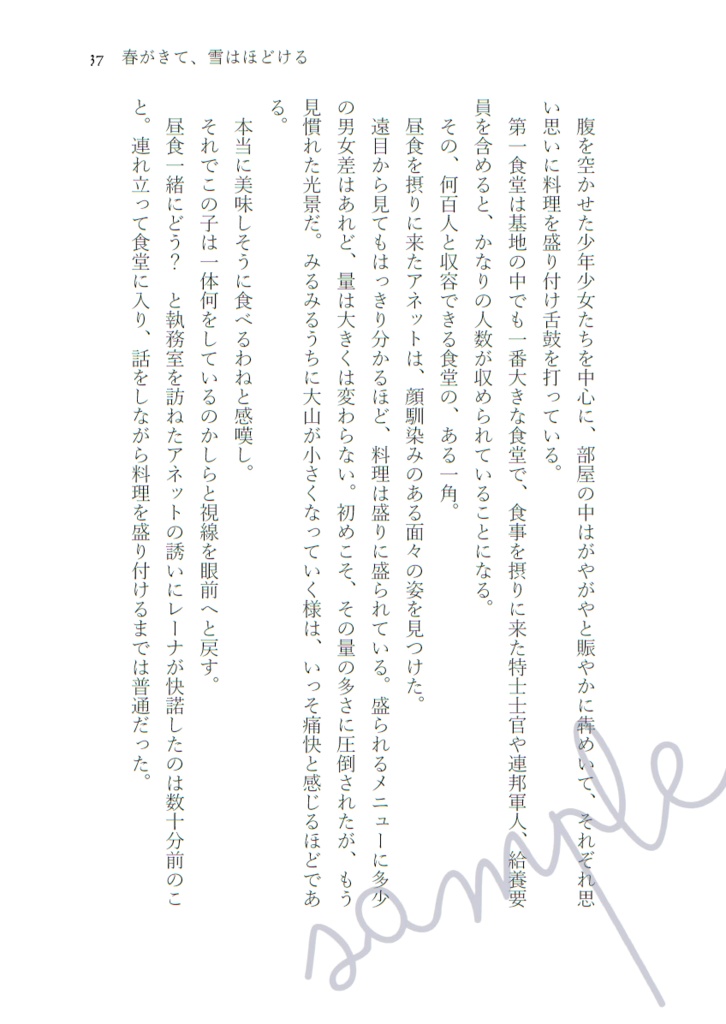 37 春がきて、雪はほどける
腹を空かせた少年少女たちを中心に、部屋の中はがやがやと賑やかに犇めいて、それぞれ思
い思いに料理を盛り付け舌鼓を打っている。
第一食堂は基地の中でも一番大きな食堂で、食事を摂りに来た特士士官や連邦軍人、給養要
員を含めると、かなりの人数が収められていることになる。
その、何百人と収容できる食堂の、ある一角。
昼食を摂りに来たアネットは、顔馴染みのある面々の姿を見つけた。
遠目から見てもはっきり分かるほど、料理は盛りに盛られている。盛られるメニューに多少
の男女差はあれど、量は大きくは変わらない。初めこそ、その量の多さに圧倒されたが、もう
見慣れた光景だ。みるみるうちに大山が小さくなっていく様は、いっそ痛快と感じるほどであ
る。
本当に美味しそうに食べるわねと感嘆し。
それでこの子は一体何をしているのかしらと視線を眼前へと戻す。
昼食一緒にどう？　と執務室を訪ねたアネットの誘いにレーナが快諾したのは数十分前のこ
と。連れ立って食堂に入り、話をしながら料理を盛り付けるまでは普通だった。
sample